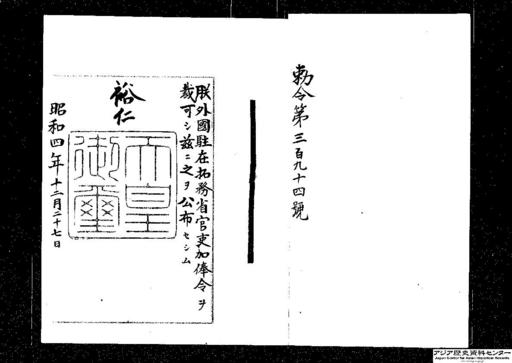 勅令第三百九十四號
朕外國駐在拓務省官吏加俸令ヲ
裁可シ茲ニ之ヲ公布セシム
裕仁
天皇
御璽
昭和四年十二月二十七日
アジア歴史資料センター
Japan Center for Asian Historical Records